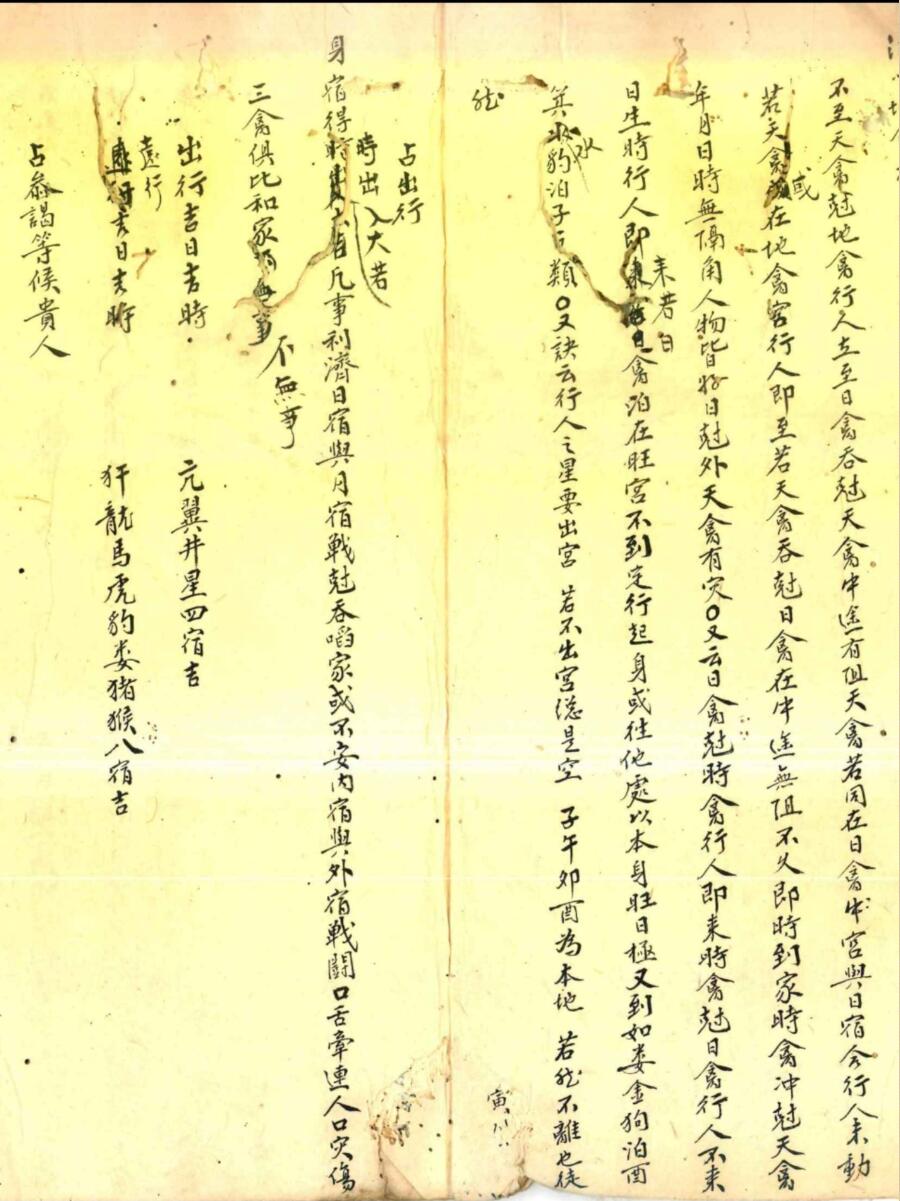 不至天禽尅地禽行人立至日禽吞尅天禽中途有阻天禽若同在日禽中宮與日宿合行人未動
若天禽或在地禽宮行人即至若天禽吞尅日禽在中途無阻不久即時到家時禽冲尅天禽
年月日時無隔角人物皆好日尅外天禽有灾〇又云日禽尅時禽行人即来時禽尅日禽行人不来
日生時行人即来若日禽泊在旺宮不到定行起身或往他處以本身旺日極又到如娄金狗泊酉
箕水豹泊子之類〇又訣云行人之星要出宮 若不出宮總是空 子午卯酉為本地 若然不離也徒
然
占出行
時出入大若
身宿得時吉凡事利濟日宿與月宿戰尅吞啗家或不安内宿與外宿戰鬪口舌牽連人口灾傷
三禽俱比和家不無事
出行吉日吉時 亢翼井星四宿吉
遠行吉日吉時 犴龍馬虎豹娄猪猴八宿吉
占叅謁等候貴人
寅